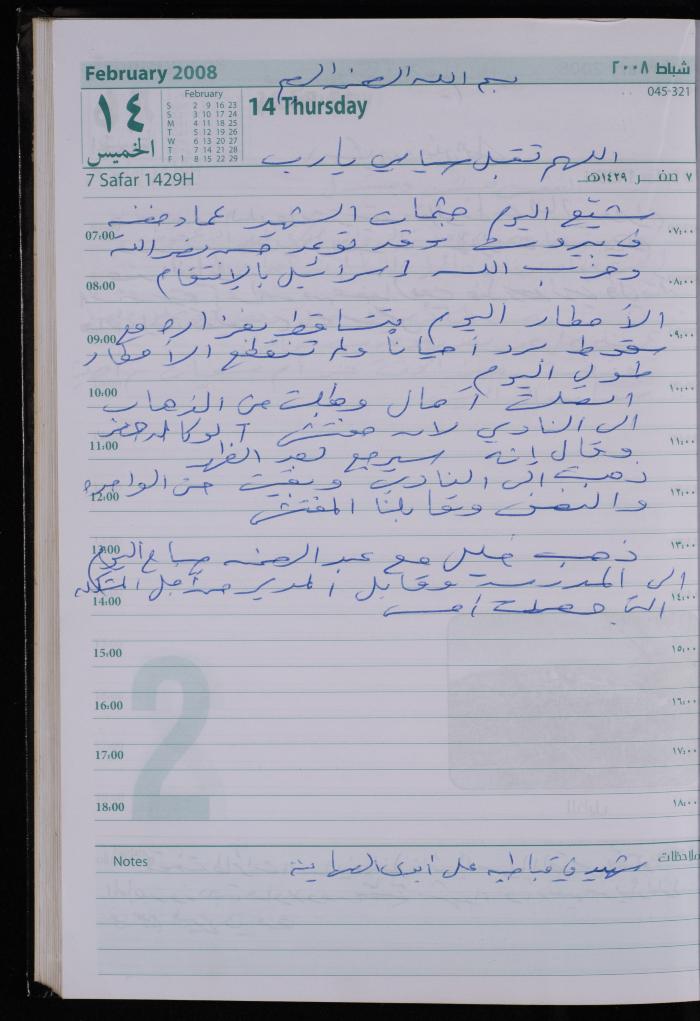 February 2008
شباط ٢٠٠٨
بسم الله الرحمن الرحيم
045-321
١٤
الخميس
February
S 2 9 16 23
S 3 10 17 24
M 4 11 18 25
T 5 12 19 26
W 6 13 20 27
T 7 14 21 28
F 1 8 15 22 29
14 Thursday
اللهم تقبل يا رب
7 Safar 1429H
٧ صفر ١٤٢٩هـ
شيّع اليوم جثمان الشهيد عماد مغنية
07:00 ٠٧:٠٠
في بيروت وقد توعد حسن نصرالله
وحزب الله اسرائيل بالإنتقام
08:00 ٠٨:٠٠
الأمطار اليوم تتساقط بغزاره مع
09:00 ٠٩:٠٠
سقوط برد أحياناً ولم تنقطع الأمطار
طول اليوم
10:00 ١٠:٠٠
اتصلت آمال وطلبت من الذهاب
الى النادي لان مفتش الوكاله حضر
11:00 ١١:٠٠
وقال إنه سيرجع بعد الظهر
ذهبت الى النادي وبقيت حتى الواحده
12:00 ١٢:٠٠
والنصف وقابلنا المفتش
13:00 ١٣:٠٠
ذهب خليل مع عبد الرحمن صباح اليوم
الى المدرسة وقابل المدير من أجل المشكله
14:00 ١٤:٠٠
التي حصلت أمس
15:00 ١٥:٠٠
16:00 ١٦:٠٠
2
17:00 ١٧:٠٠
18:00 ١٨:٠٠
Notes
ملاحظات
شهيد في قباطيه على أيدي الصهاينة